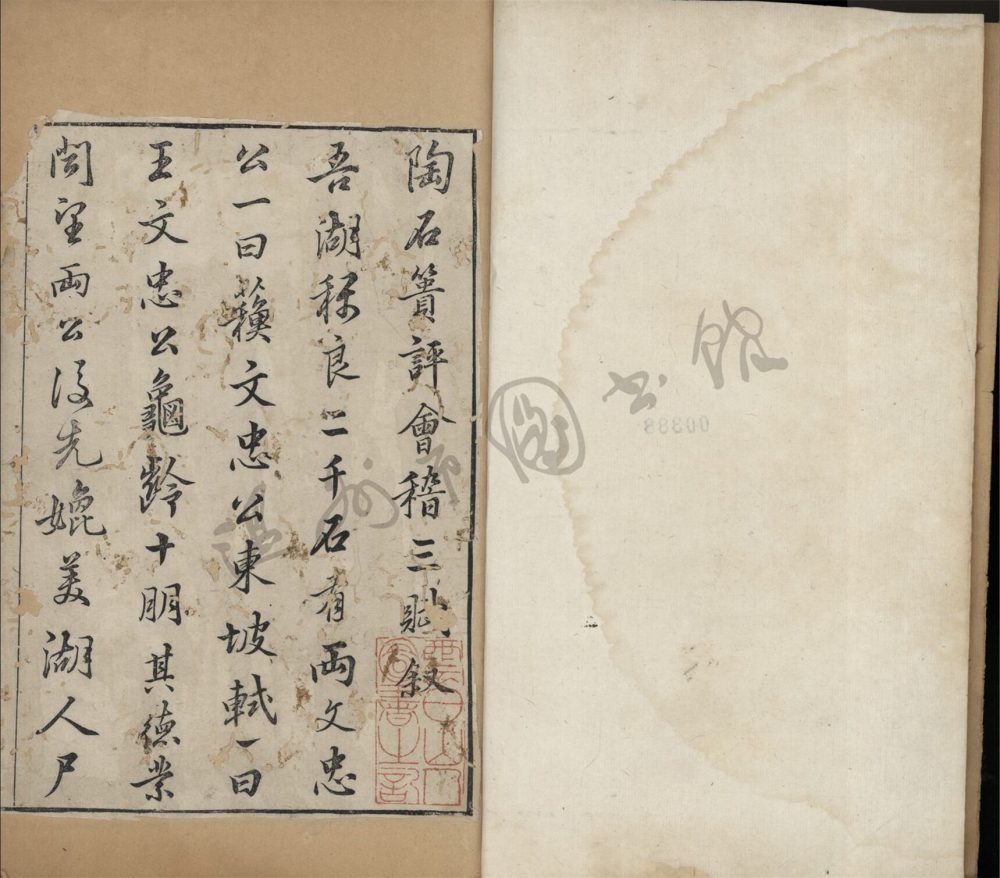 陶石簣評會稽三賦叙
吾湖稱良二千石有兩文忠
公一曰蘓文忠公東坡軾一曰
王文忠公龜齡十朋其德業
聞望兩公後先媲美湖人尸
温州市圖書館
00388